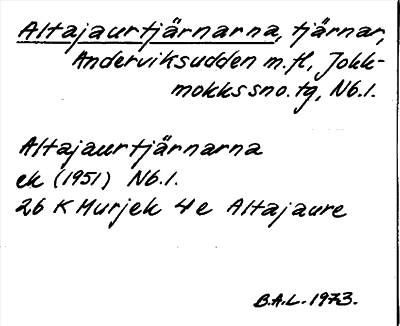 Altajaurtjärnarna, tjärnar,
Anderviksudden m.fl, Jokk-
mokks sno. tg, Nb.l.
Altajaurtjärnarna
ek (1951) Nb.l.
26 K Murjek 4e Altajaure
B.A.L. 1973.